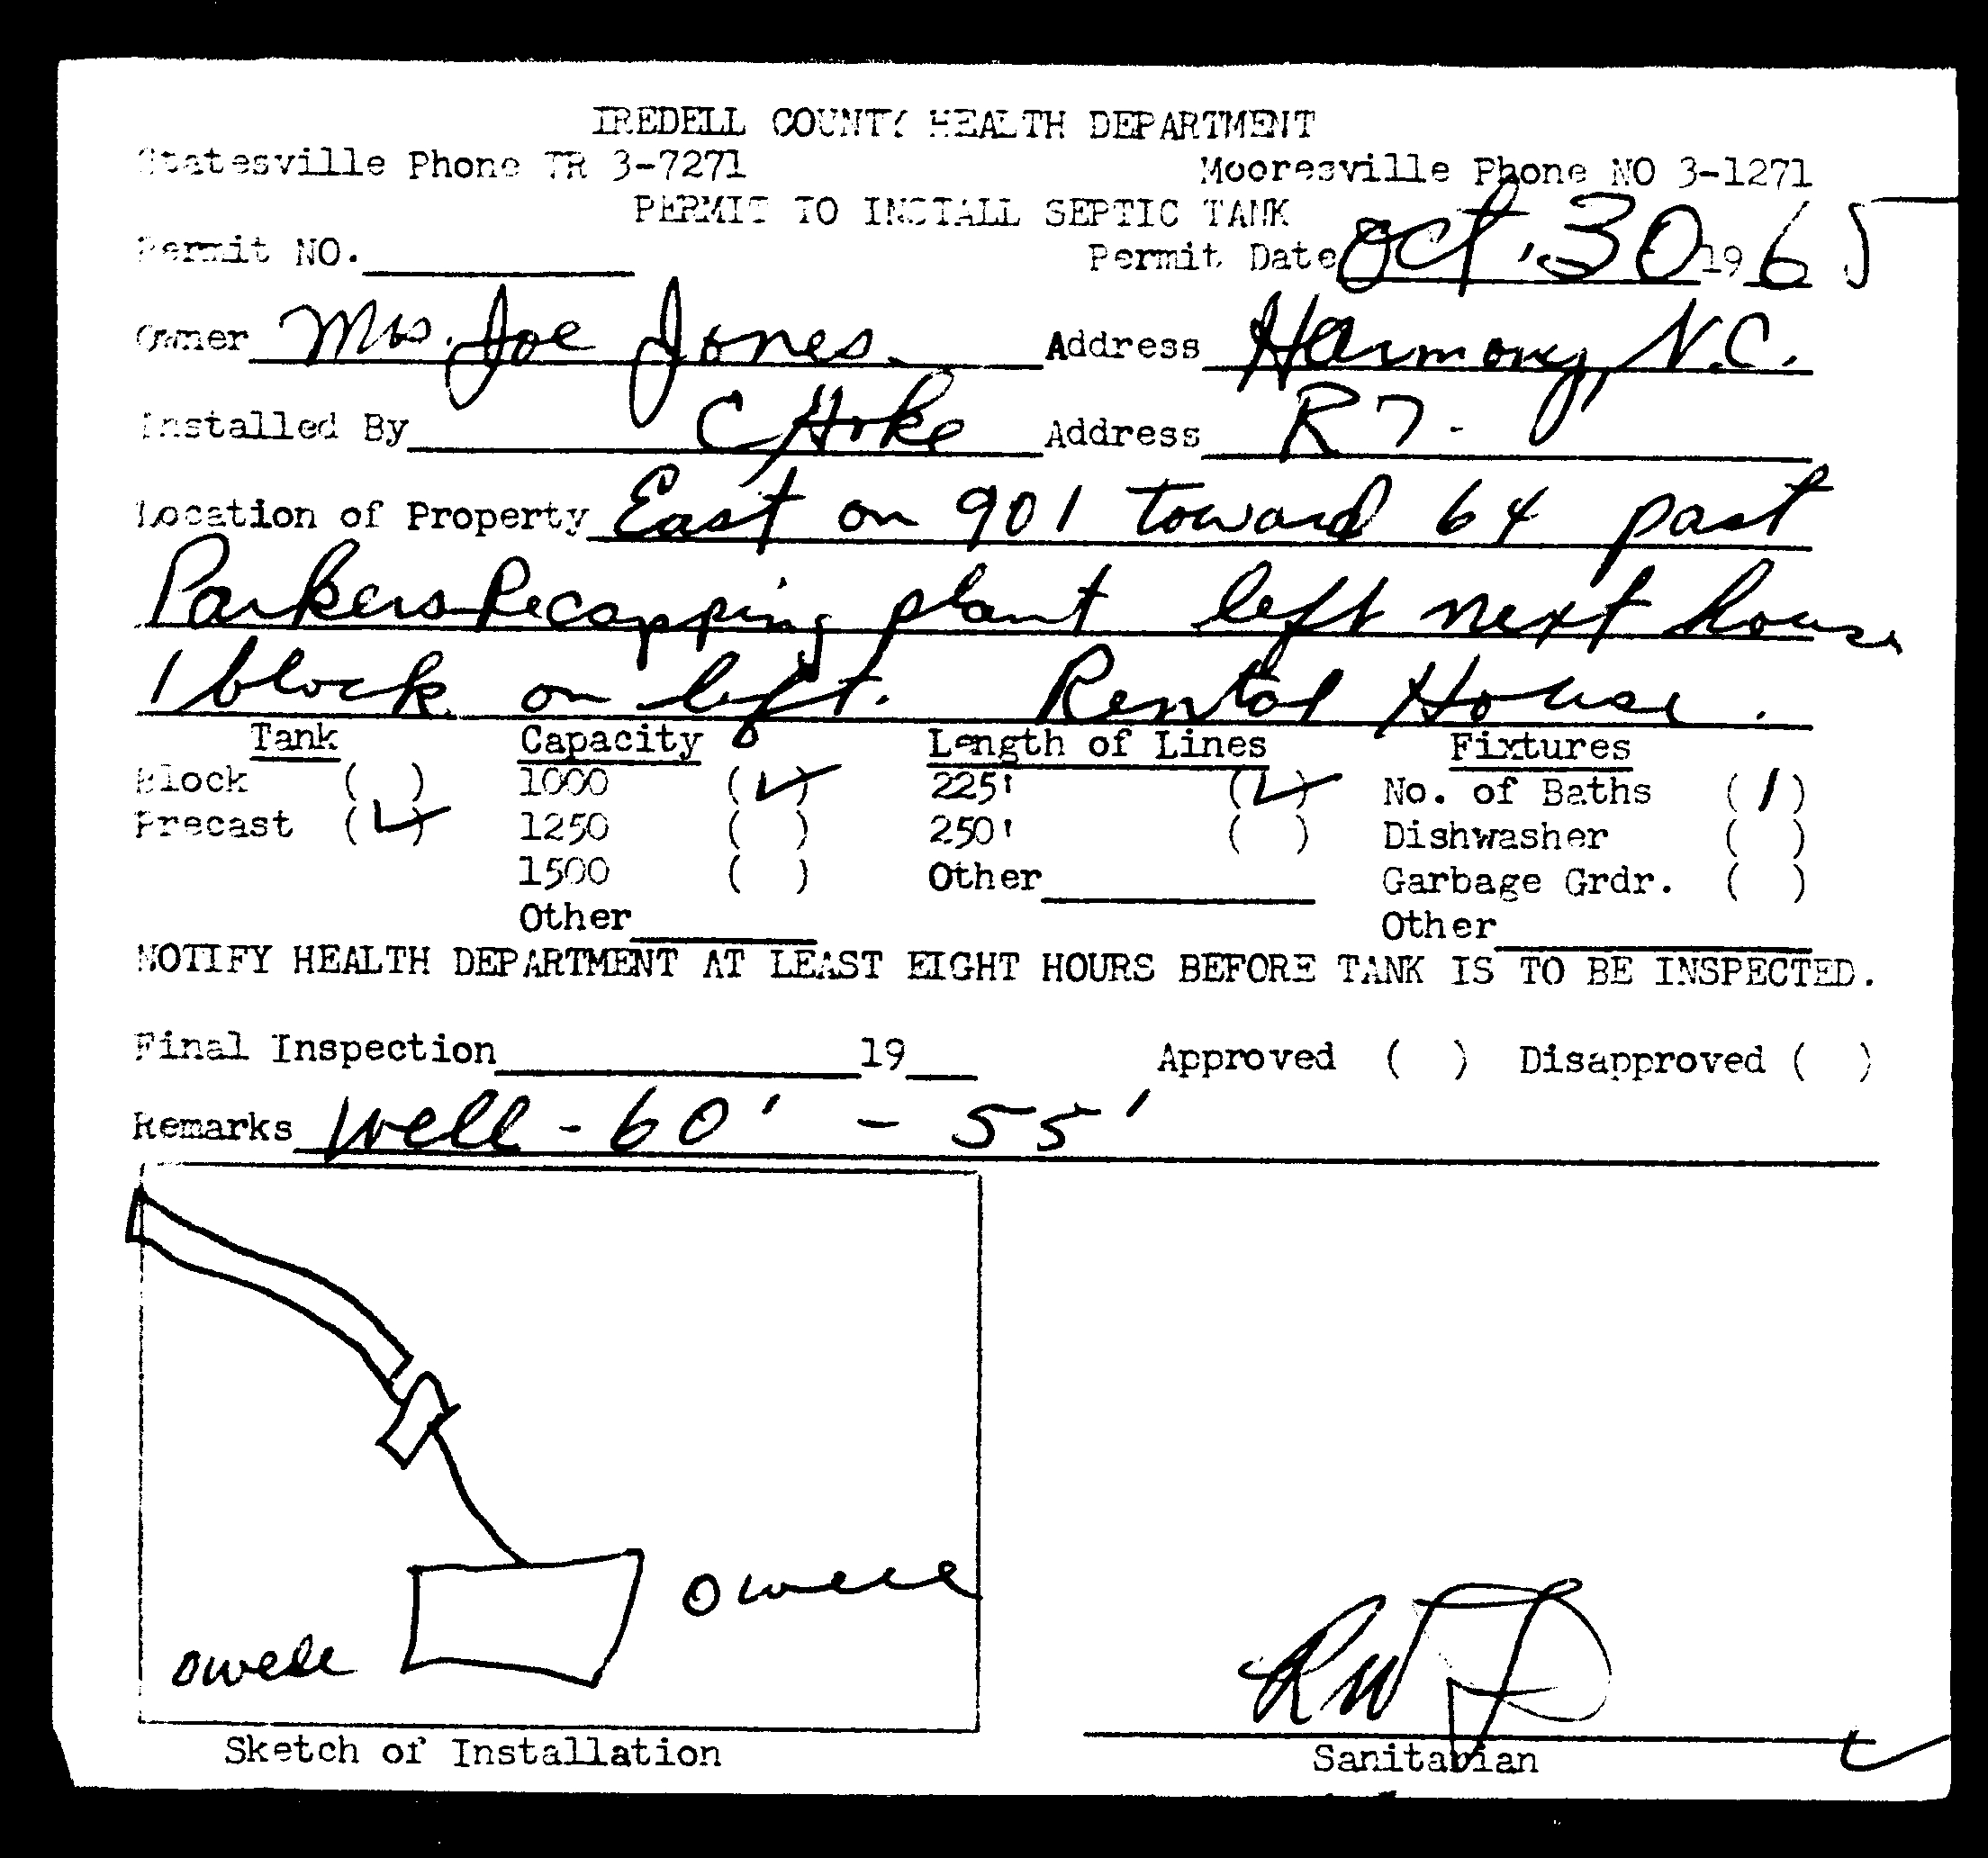 IREDELL COUNTY HEALTH DEPARTMENT
Statesville Phone TR 3-7271 Mooresville Phone NO 3-1271
PERMIT TO INSTALL SEPTIC TANK
Permit NO. Permit Date Oct. 30 19 65
Owner Mrs. Joe Jones. Address Harmony, N.C.
Installed By C Hoke Address R7.
Location of Property East on 901 toward 64 past
Parkers Recapping plant left next house
1 block on left. Rental House.
Tank Capacity Length of Lines Fixtures
Block ( ) 1000 (✓) 225' (✓) No. of Baths (1)
Precast (✓) 1250 ( ) 250' ( ) Dishwasher ( )
1500 ( ) Other Garbage Grdr. ( )
Other Other
NOTIFY HEALTH DEPARTMENT AT LEAST EIGHT HOURS BEFORE TANK IS TO BE INSPECTED.
Final Inspection 19 Approved ( ) Disapproved ( )
Remarks well - 60' - 55'
o well
o well
Sketch of Installation
Sanitarian